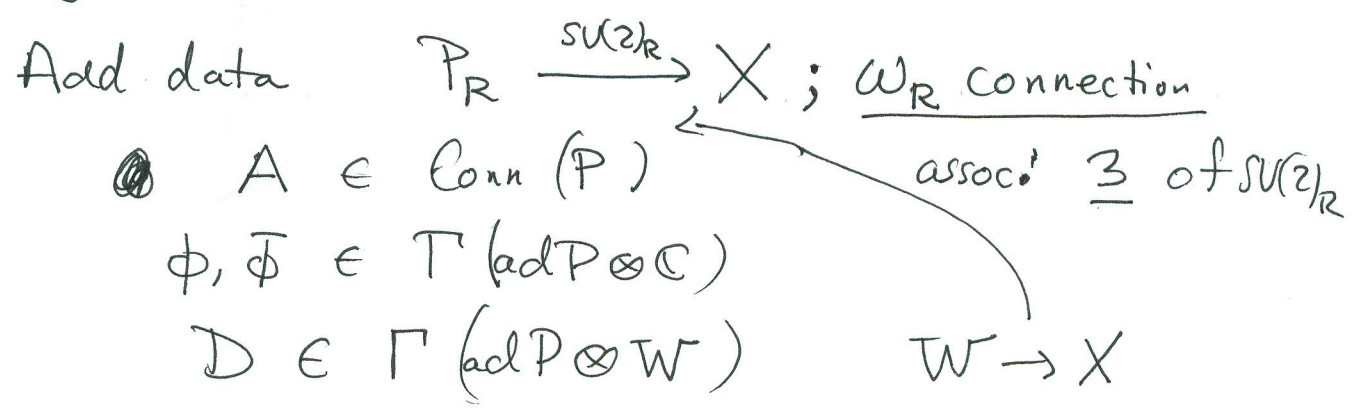 Add data P_R \xrightarrow{SU(2)_R} X ; ω_R connection
A ∈ Conn (P) assoc. 3 of SU(2)_R
ϕ, ϕ̄ ∈ Γ (adP ⊗ ℂ)
D ∈ Γ (adP ⊗ W) W → X